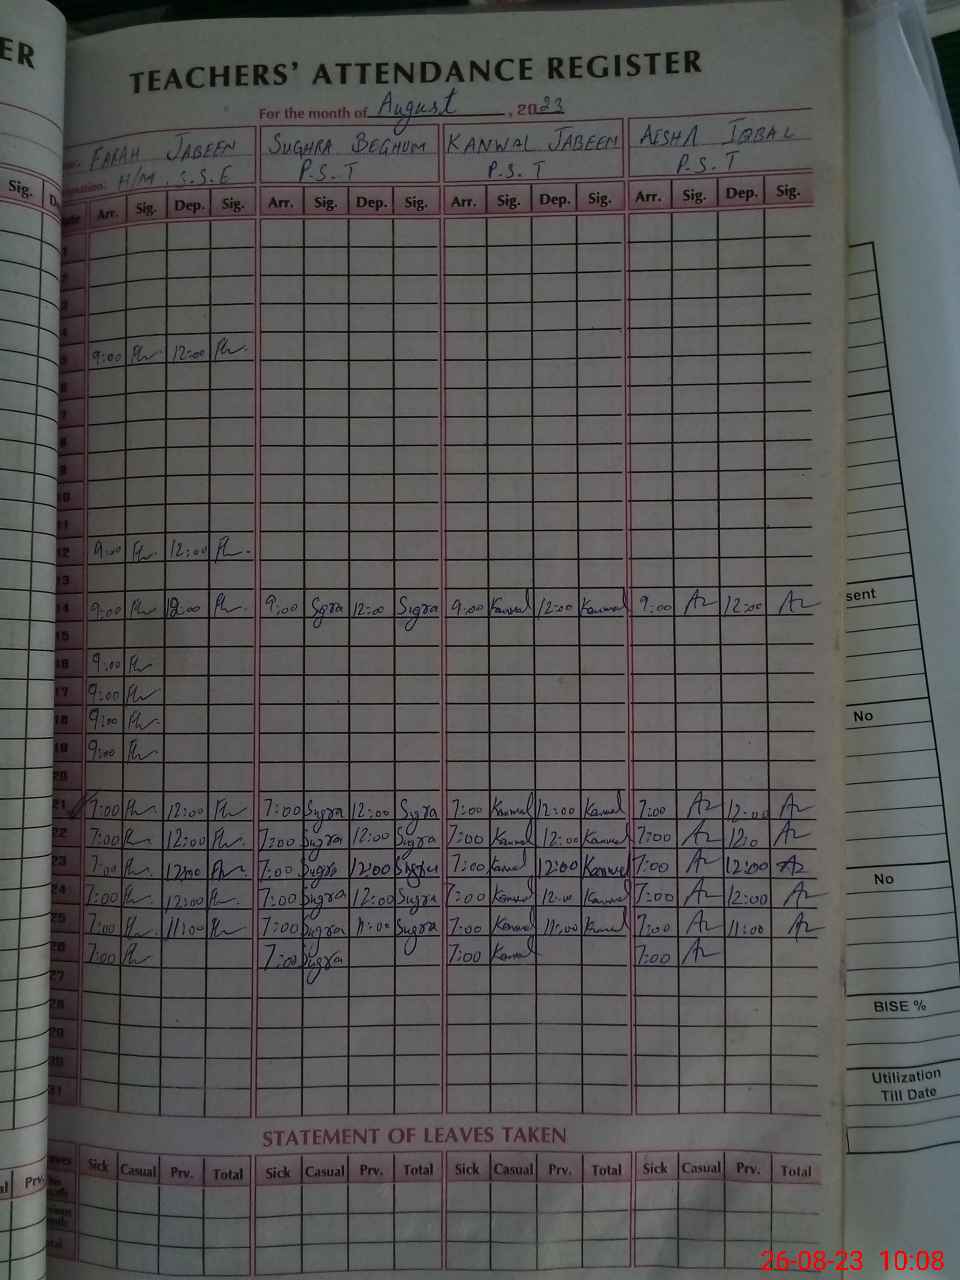 ER
TEACHERS' ATTENDANCE REGISTER
For the month of August, 2023
FARAH JABEEN SUGHRA BEGHUM KANWAL JABEEN AESHA IQBAL
H/M, S.S.E P.S.T P.S.T P.S.T
Sig. Arr. Sig. Dep. Sig. Arr. Sig. Dep. Sig. Arr. Sig. Dep. Sig. Arr. Sig. Dep. Sig.
9:00 12:00
12 9:00 12:00
13
14 9:00 12:00 9:00 Sgra 12:00 Sigra 9:00 Kanwal 12:00 Kanwal 9:00 Az 12:00 Az
sent
15
16 9:00
17 9:00
18 9:00
No
19 9:00
20
21 7:00 12:00 7:00 Sugra 12:00 Sugra 7:00 Kanwal 12:00 Kanwal 7:00 Az 12:00 Az
22 7:00 12:00 7:00 Sugra 12:00 Sugra 7:00 Kanwal 12:00 Kanwal 7:00 Az 12:0 Az
23 7:00 12:00 7:00 Sugra 12:00 7:00 Kanwal 12:00 Kanwal 7:00 Az 12:00 Az
No
24 7:00 12:00 7:00 Sugra 12:00 Sugra 7:00 Kanwal 12:00 Kanwal 7:00 Az 12:00 Az
25 7:00 11:00 7:00 Sugra 11:00 Sugra 7:00 Kanwal 11:00 Kanwal 7:00 Az 11:00 Az
26 7:00 7:00 Sugra 7:00 Kanwal 7:00 Az
27
28
BISE %
29
30
31
Utilization
Till Date
STATEMENT OF LEAVES TAKEN
Sick Casual Prv. Total Sick Casual Prv. Total Sick Casual Prv. Total Sick Casual Prv. Total
Prv.
26-08-23 10:08